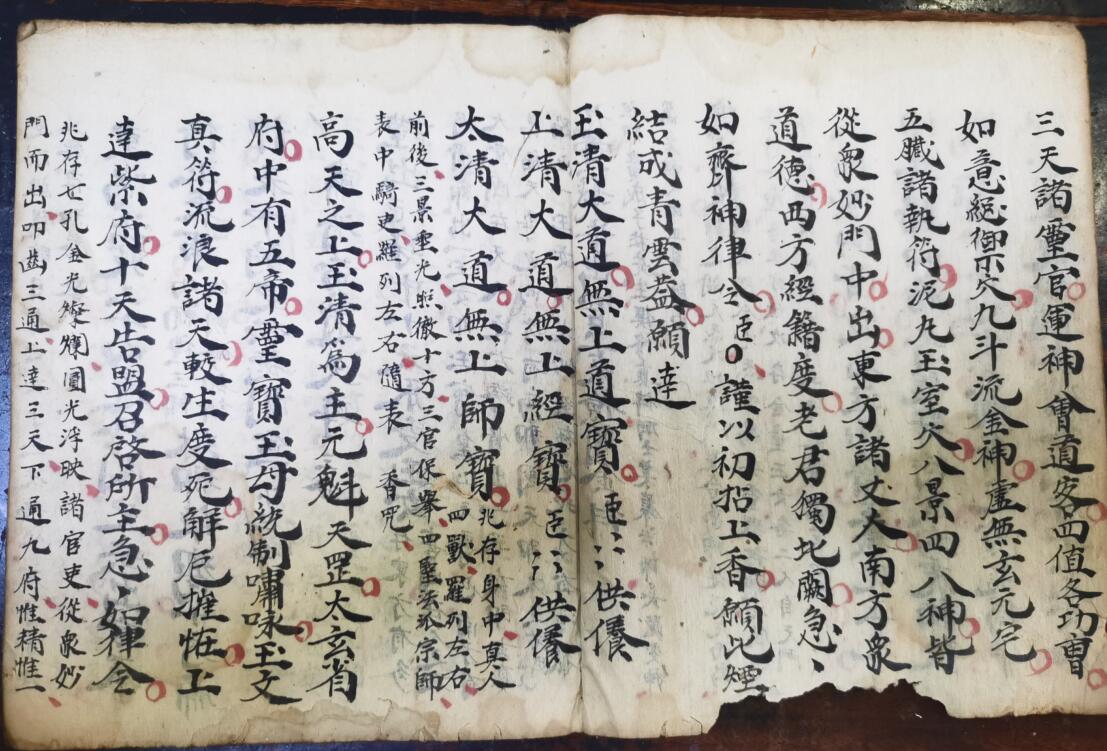 三天諸靈官運神會道客四值各功曹
如意總御㮈欠九斗流金神虛無玄元宅
五臟諸執符泥九玉室欠八景四八神皆
從衆妙門中出東方諸丈大南方衆
道德西方經籍度老君獨北闕急〻
如齊神律令 臣〇謹以初拈上香願此煙
結成青雲蓋願達
玉清大道無上道寶 臣〻供養
上清大道無上經寶 臣〻供養
太清大道無上師寶 兆存身中真人四獸羅列左右
前後三景靈光照徹十方三官保舉四聖法派宗師
表中騎吏羅列左右隨表 香咒
高天之上玉清為主元魁天罡太玄省
府中有五帝靈寶玉母統制嘯咏玉文
真符流浪諸天較生度死解厄摧怪上
達紫府十天告盟召啓所主急〻如律令
兆存七孔金光燦爛圓光浮映諸官吏從衆妙
門而出叩齒三通上達三天下通九府惟精惟一